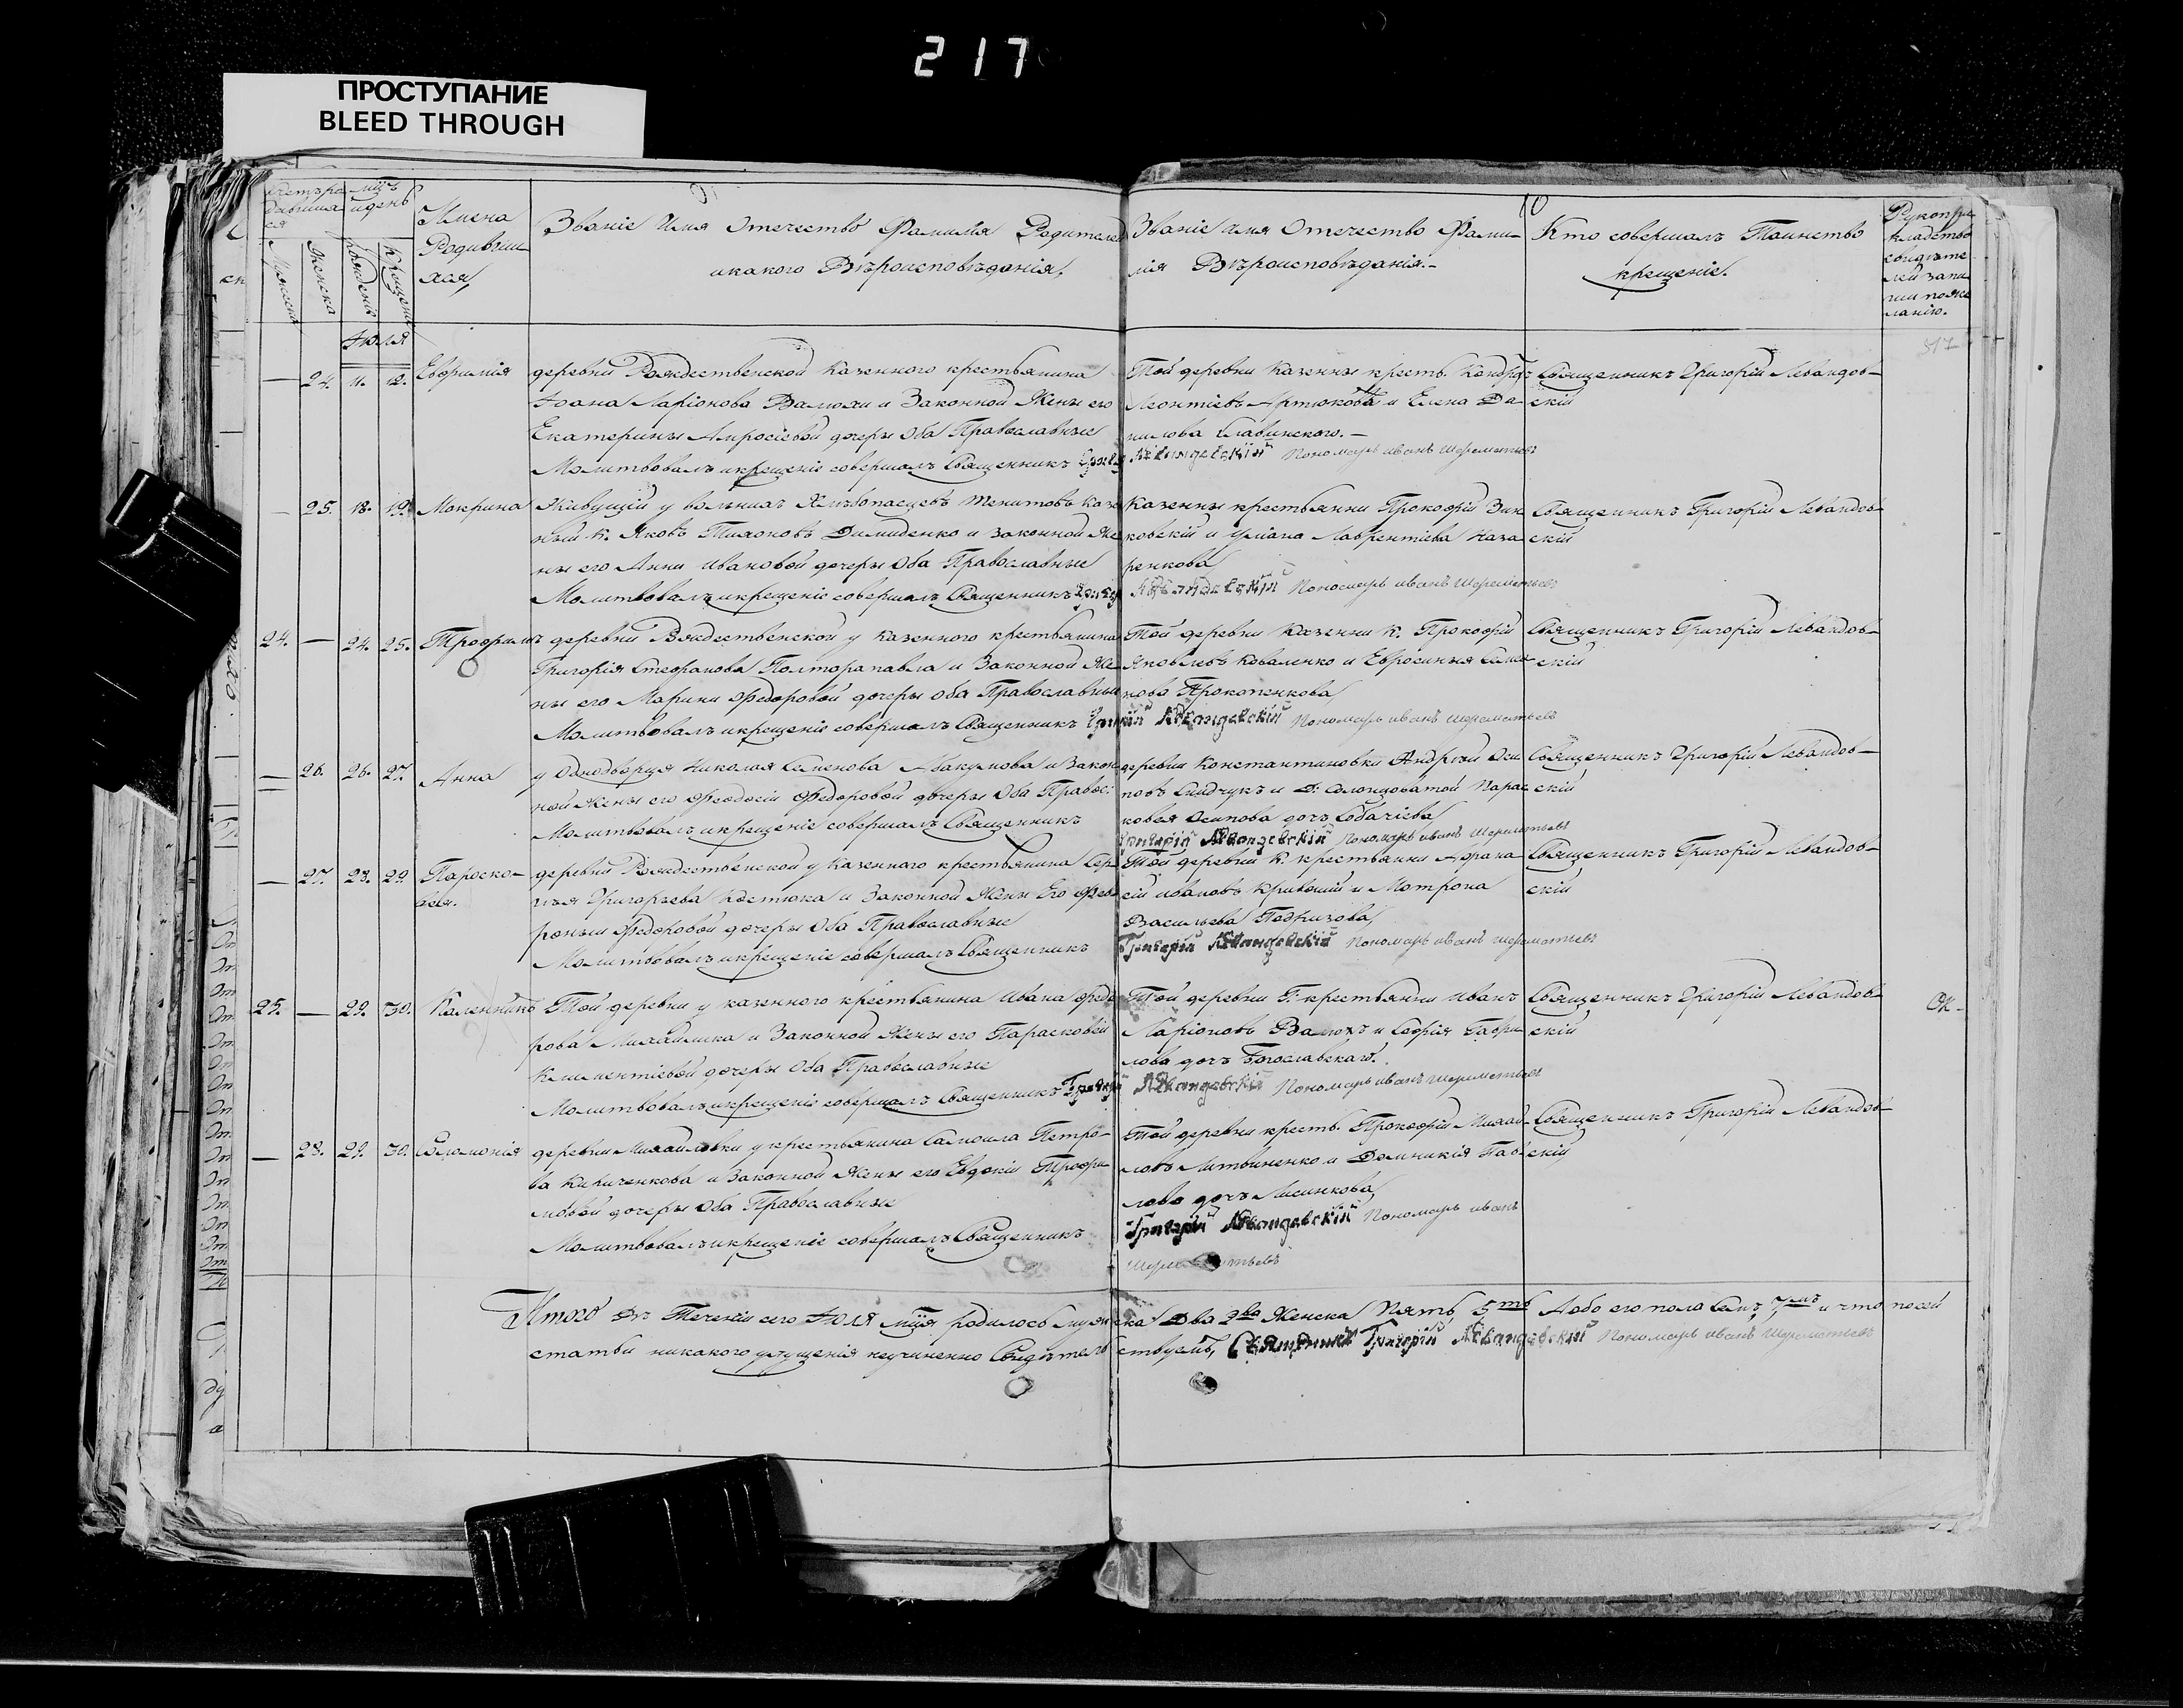 217
ПРОСТУПАНИЕ
BLEED THROUGH
9
10
Имена Родившихся
Званіе Имя Отечество Фамилія Родителей
икакого Вѣроисповѣданія,
Званіе имя Отечество Фами-
лія Вѣроисповѣданія.-
Кто совершалъ Таинство
крещеніе.
Рукопри-
кладство
свидѣте
лей запи
си пожe
ланію.
Мужска
Женска
рожденія
Крещенія
Іюля
517
— 24. 11. 12. Евфимія
деревни Рождественской Казенного крестьянина
Іоана Ларіонова Валюхи и Законной Жены его
Екатерины Амросіевой дочеры Оба Православные
Молитвовалъ икрещеніе совершалъ Священникъ
Той деревни Казенны кресть. Кондратъ
Леонтіевъ и Елена Да-
нилова Славинского.-
Левандовскій Пономарь иванъ Шереметьевъ
Священникъ Григорій Левандов-
скій
— 25. 18. 19. Мокрина
Живущій у вольныхъ Хлѣбопасцевъ Казе
ный К. Яковъ Тихоновъ Димиденко и законной Же
ны его Анни Ивановой дочеры Оба Православные
Молитвовалъ икрещеніе совершалъ Священникъ Григорій
Казенны крестьянни Прокофій Зин
ковскій и Уліана Лаврентіева Наза
ренкова
Левандовскій Пономарь иванъ Шереметьевъ
Священникъ Григорій Левандов-
скій
24. — 24. 25. Трофимъ
деревни Рождественской у казенного крестьянина
Григорія Стефанова Полторапавла и Законной Же
ны его Марини Федоровой дочеры Оба Православныи
Молитвовалъ икрещеніе совершалъ Священникъ Григорій
Той деревни Казенни К. Прокофій
Яковлевъ Коваленко и Евросиныя Симо
нова Прокопенкова
Левандовскій Пономарь иванъ Шереметьевъ
Священникъ Григорій Левандов-
скій
— 26. 26. 27. Анна
у Однодворця Николая Семенова Абакумова и Закон
ной Жены его Феодосіи Федоровой дочеры Оба Правос:
Молитвовалъ икрещеніе совершалъ Священникъ
деревни Константиновки Андрей Оси
повъ и Д: Солонцоватой Парас
ковея Осипова дочъ Собачіева
Григорій Левандовскій Пономарь иванъ Шереметьевъ
Священникъ Григорій Левандов-
скій
— 27. 28. 29 Пароско-
вея.
деревни Рождественской у Казенного крестьянина Сер-
гѣя Григорьева Костюка и Законной Жены Его Фев
роньи Федоровой дочеры Оба Православные
Молитвовалъ икрещеніе совершалъ Священникъ
Той деревни К. крестьянни Афана
сій ивановъ Кривошій и Мотрона
Васильева Поднизова
Григорій Левандовскій Пономарь иванъ Шереметьевъ
Священникъ Григорій Левандов-
скій
25. — 29. 30. Каленникъ
Той деревни у казенного крестьянина Ивана Федо
рова Михайлика и Законной Жены его Парасковей
Климентіевой дочеры Оба Православные
Молитвовалъ икрещеніе совершалъ Священникъ Григорій
Той деревни Г. крестьянни иванъ
Ларіоновъ Валюхъ и Софія Гаври
лова дочъ Богославскаго.
Левандовскій Пономарь иванъ Шереметьевъ
Священникъ Григорій Левандов-
скій
— 28. 29. 30. Соломонія
деревни Михайловки у крестьянина Самоила Петро-
ва Кириченкова и Законной Жены его Евдокіи Трофи-
мовой дочеры Оба Православные
Молитвовалъ икрещеніе совершалъ Священникъ
Той деревни кресть. Прокофій Михай-
ловъ Литвиненко и Домникія Пав-
лова дочъ Лисинкова
Григорій Левандовскій Пономарь иванъ
Шереметьевъ
Священникъ Григорій Левандов-
скій
Итого Въ Теченіи сего Іюля мца родилось мужеска Два 2ва Женска Пять 5ть Aобо его пола Семъ 7мъ и что посей
статьи никакого упущенія неучиненно Свидѣтельствуемъ, Священникъ Григорій Левандовскій Пономарь иванъ Шереметьевъ